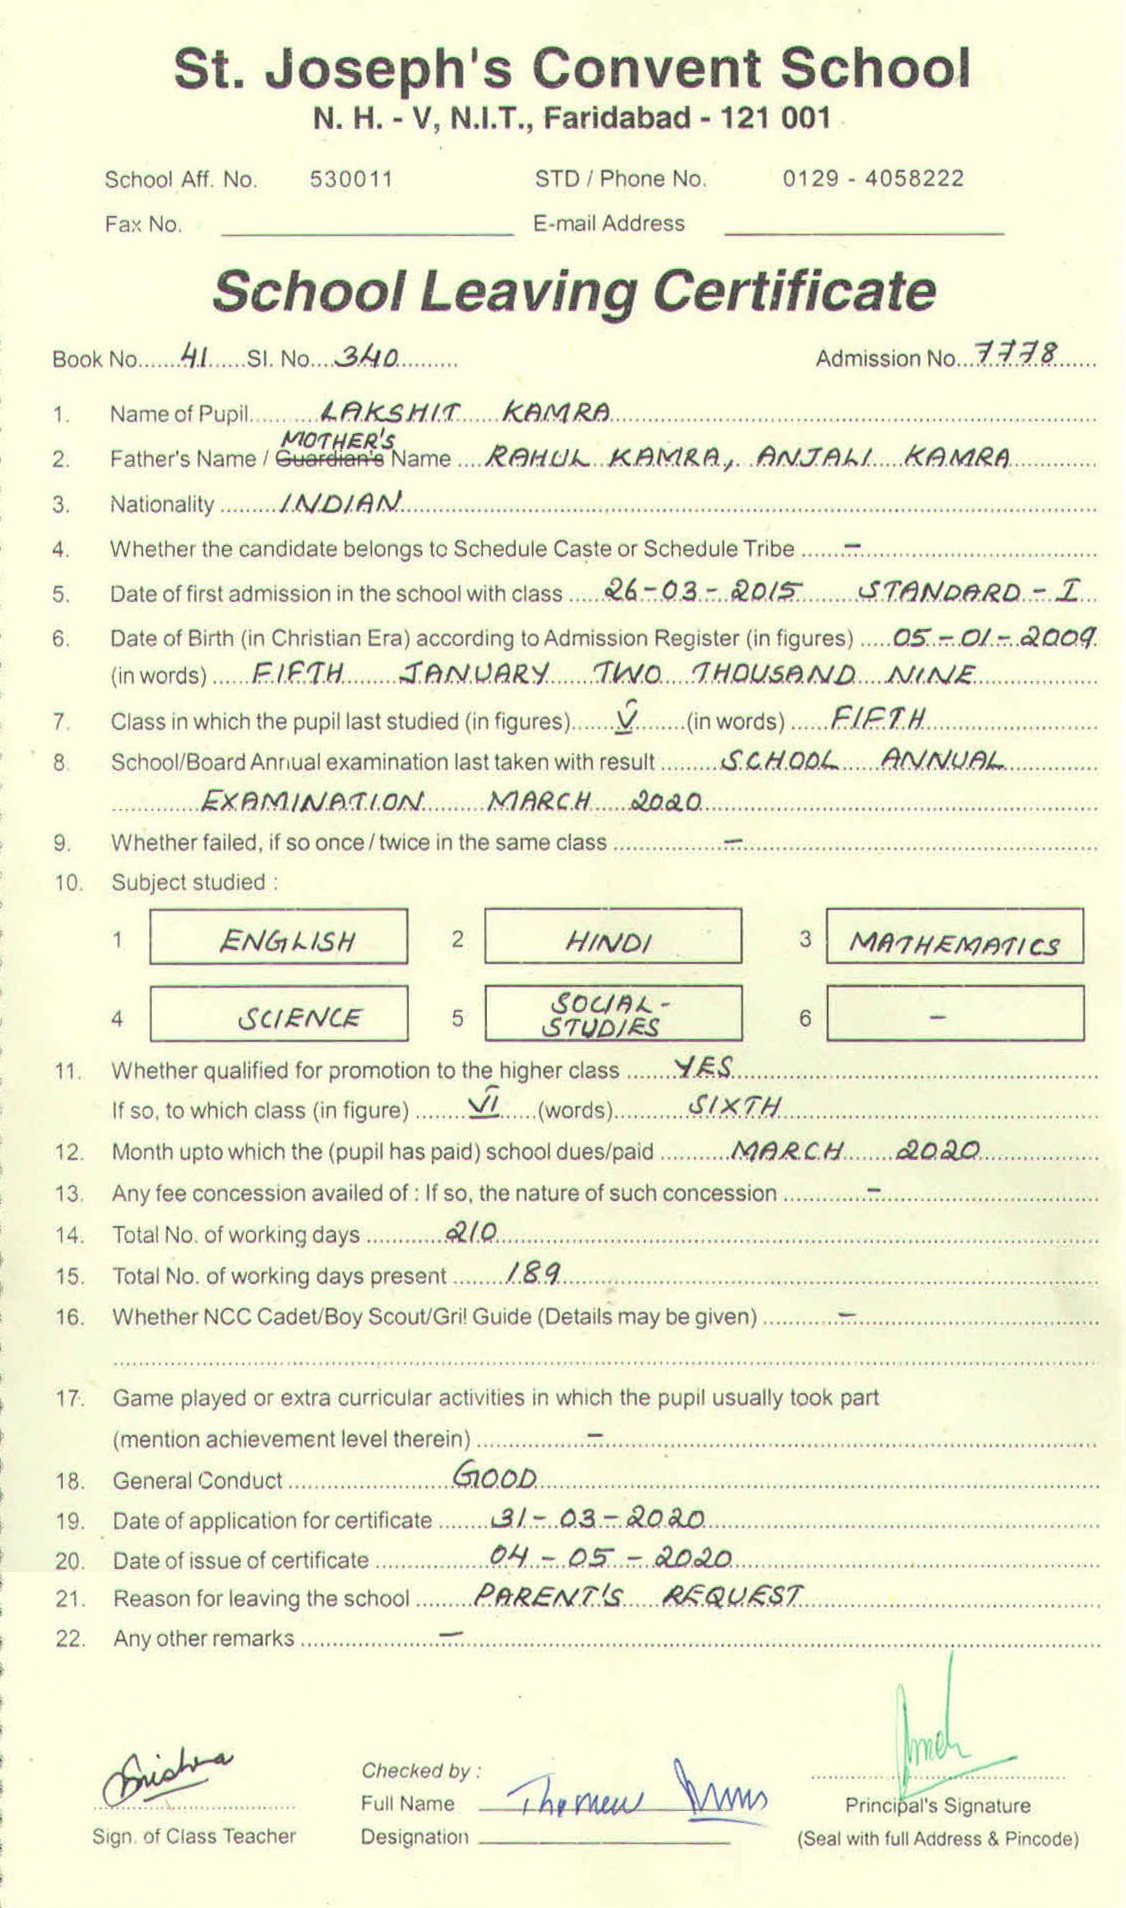 St. Joseph's Convent School
N. H. - V, N.I.T., Faridabad - 121 001
School Aff. No. 530011 STD / Phone No. 0129 - 4058222
Fax No. E-mail Address
School Leaving Certificate
Book No. 41 Sl. No. 340 Admission No. 7778
1. Name of Pupil LAKSHIT KAMRA
MOTHER'S
2. Father's Name / Guardian's Name RAHUL KAMRA, ANJALI KAMRA
3. Nationality INDIAN
4. Whether the candidate belongs to Schedule Caste or Schedule Tribe -
5. Date of first admission in the school with class 26-03-2015 STANDARD - I
6. Date of Birth (in Christian Era) according to Admission Register (in figures) 05-01-2009
(in words) FIFTH JANUARY TWO THOUSAND NINE
7. Class in which the pupil last studied (in figures) V (in words) FIFTH
8. School/Board Annual examination last taken with result SCHOOL ANNUAL
EXAMINATION MARCH 2020
9. Whether failed, if so once / twice in the same class -
10. Subject studied :
1 ENGLISH 2 HINDI 3 MATHEMATICS
4 SCIENCE 5 SOCIAL-
STUDIES 6 -
11. Whether qualified for promotion to the higher class YES
If so, to which class (in figure) VI (words) SIXTH
12. Month upto which the (pupil has paid) school dues/paid MARCH 2020
13. Any fee concession availed of : If so, the nature of such concession -
14. Total No. of working days 210
15. Total No. of working days present 189
16. Whether NCC Cadet/Boy Scout/Gril Guide (Details may be given) -
17. Game played or extra curricular activities in which the pupil usually took part
(mention achievement level therein) -
18. General Conduct GOOD
19. Date of application for certificate 31-03-2020
20. Date of issue of certificate 04-05-2020
21. Reason for leaving the school PARENT'S REQUEST
22. Any other remarks -
Checked by :
Full Name
Principal's Signature
Sign. of Class Teacher Designation (Seal with full Address & Pincode)